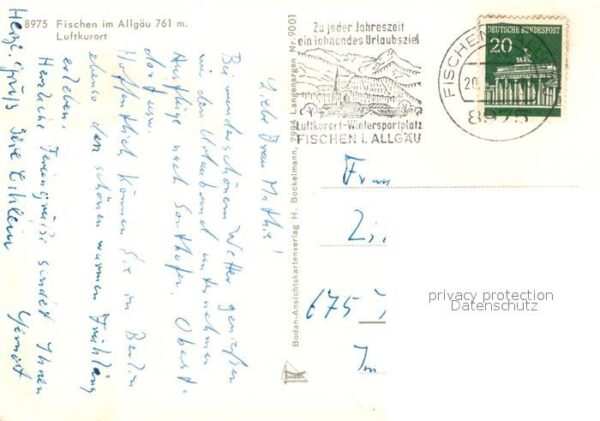 8975 Fischen im Allgäu 761 m.
Luftkurort
Liebe Frau
Bei wunderschönem Wetter genießen
wir den Urlaub und unternehmen
Ausflüge nach Sonthofen, Oberst-
dorf usw.
Hoffentlich können Sie in Berlin
ebenso den schönen warmen Frühling
erleben.
Herzliche Feriengrüße sendet Ihnen
Herzl. Grüße Ihre
Bodan-Ansichtskartenverlag H. Bockelmann, 7994 Langenargen Nr. 9001
bodan
Zu jeder Jahreszeit
ein lohnendes Urlaubsziel
Luftkurort-Wintersportplatz
FISCHEN i. ALLGÄU
FISCHEN
20.
8975
DEUTSCHE BUNDESPOST
20
Frau
675
Im
privacy protection
Datenschutz